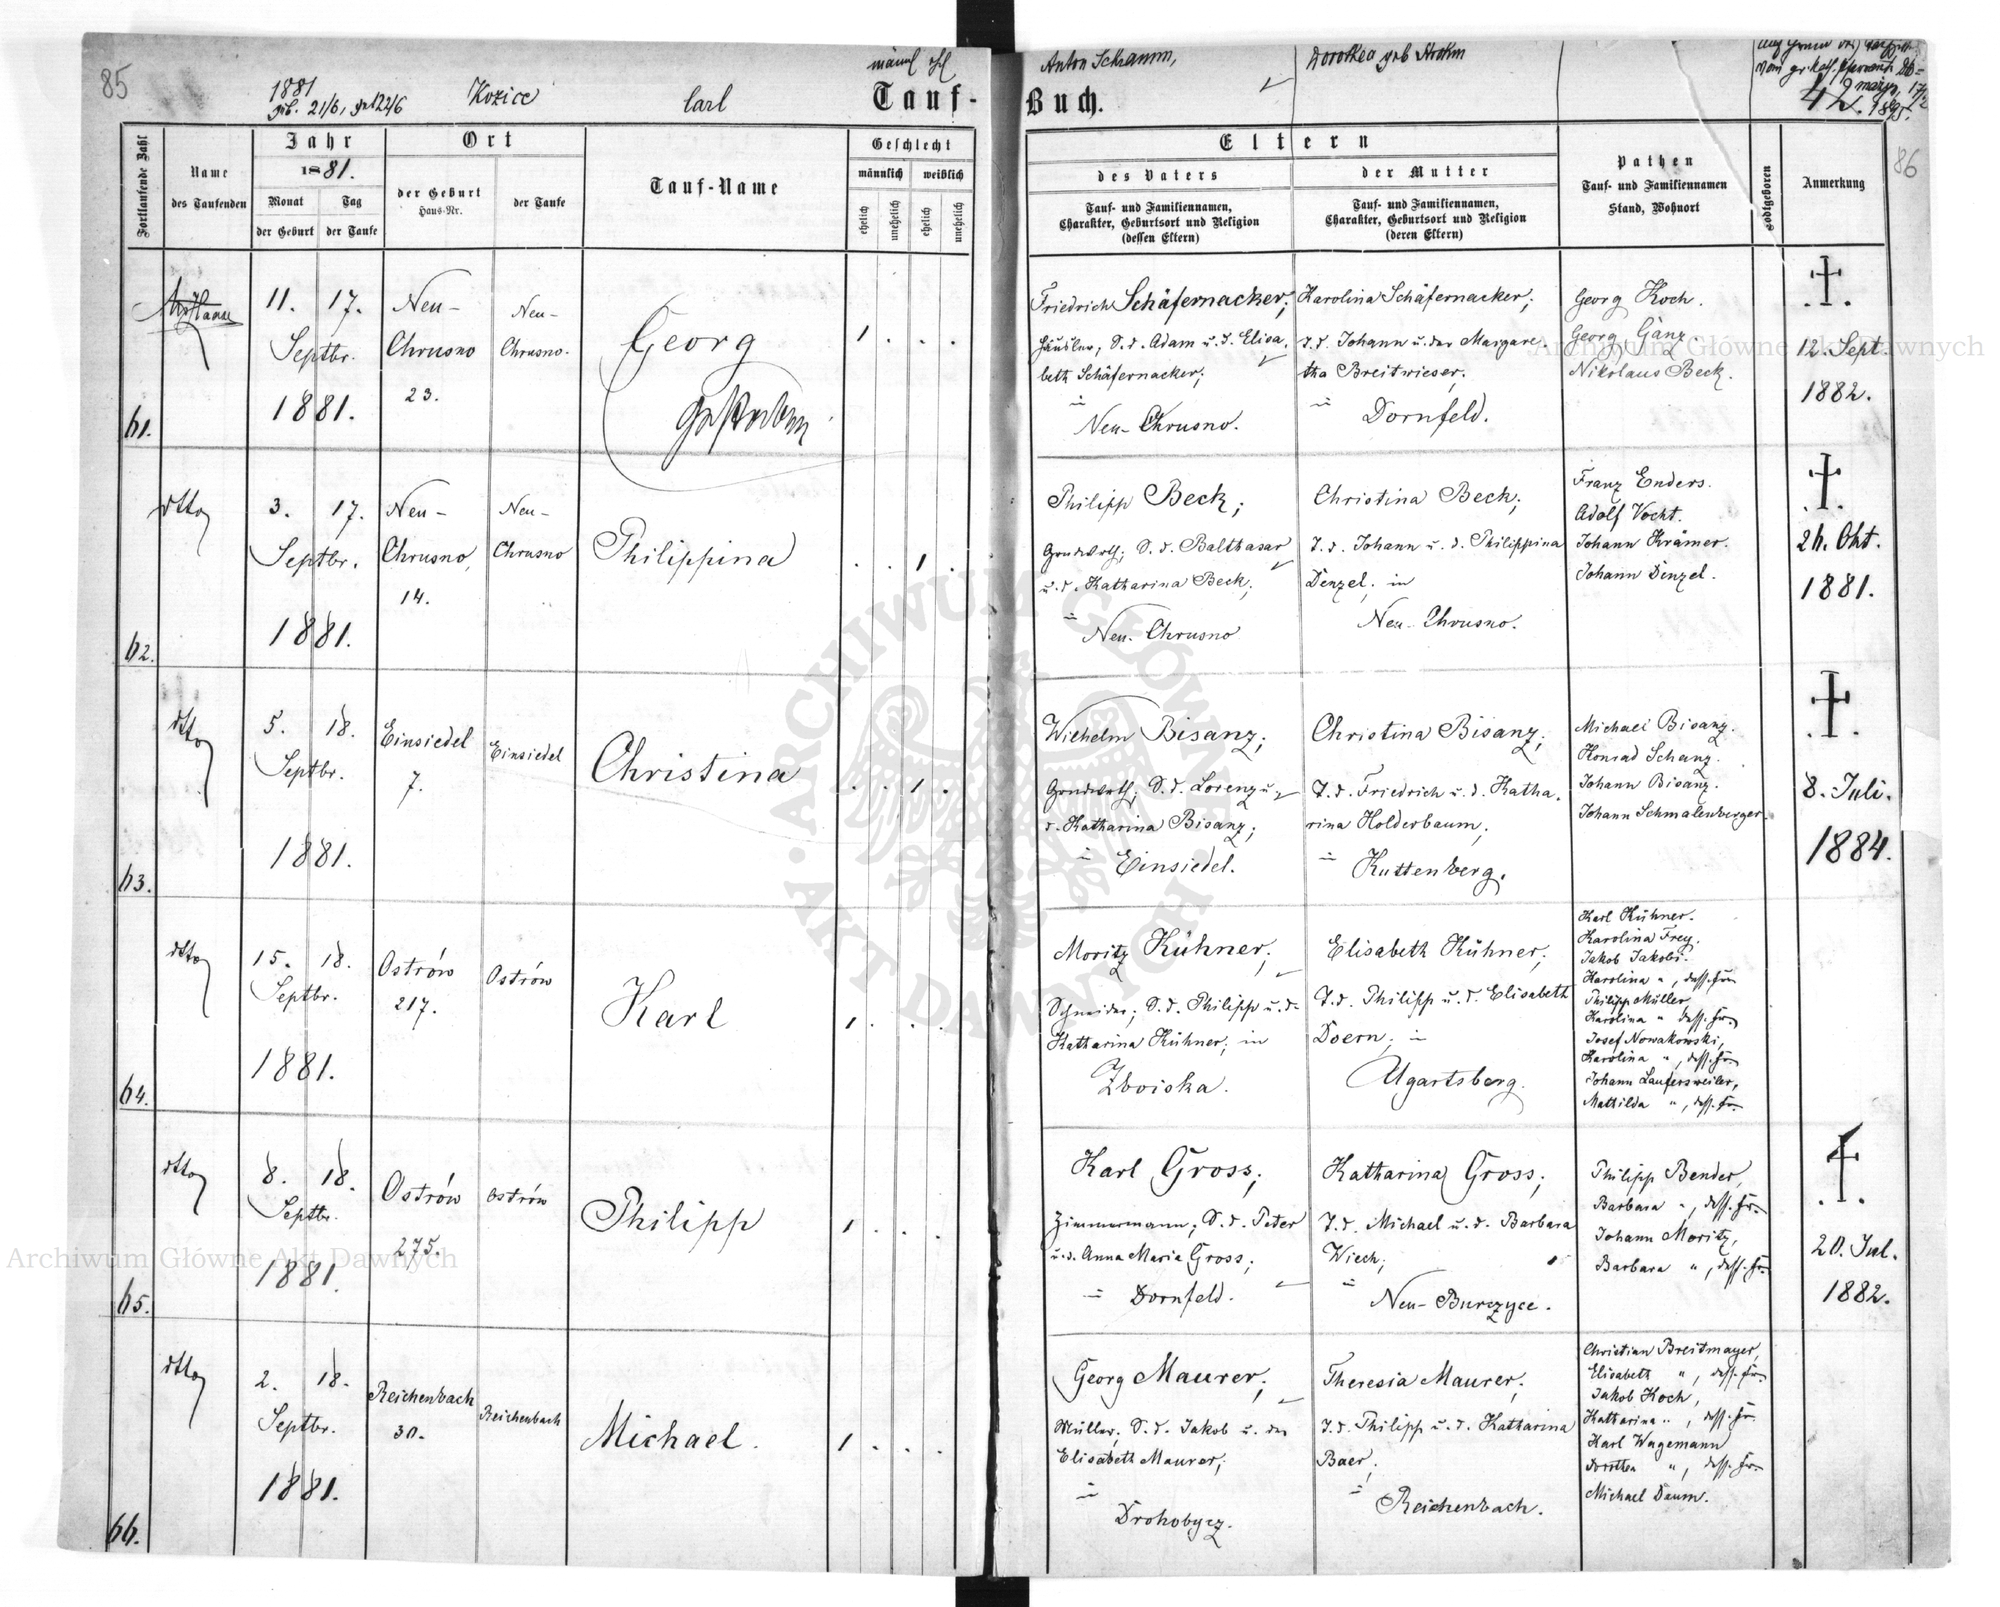 85
1881
geb. 21/6, get 22/6
Kozice
Carl
männl ehl
Tauf-
Fortlaufende Zahl
Name
des Taufenden
Jahr
1881.
Monat
der Geburt
Tag
der Taufe
Ort
der Geburt
Haus-Nr.
der Taufe
Tauf-Name
Geschlecht
männlich
weiblich
ehelich
unehelich
ehelich
unehelich
61.
11. 17.
Septbr.
1881.
Neu-
Chrusno
23.
Neu-
Chrusno.
Georg
Gestorben
1 . . .
62.
dtto
3. 17.
Septbr.
1881.
Neu-
Chrusno,
14.
Neu-
Chrusno
Philippina
. . 1 .
63.
dtto
5. 18.
Septbr.
1881.
Einsiedel
7.
Einsiedel
Christina
. . 1 .
64.
dtto
15. 18.
Septbr.
1881.
Ostrów
217.
Ostrów
Karl
1 . . .
65.
dtto
8. 18.
Septbr.
1881.
Ostrów
275.
Ostrów
Philipp
1 . . .
66.
dtto
2. 18.
Septbr.
1881.
Reichenbach
30.
Reichenbach
Michael.
1 . . .
Anton Schramm,
Dorothea geb
Buch.
42.
1895.
86
Eltern
des Vaters
Tauf- und Familiennamen,
Charakter, Geburtsort und Religion
(dessen Eltern)
der Mutter
Tauf- und Familiennamen,
Charakter, Geburtsort und Religion
(deren Eltern)
Pathen
Tauf- und Familiennamen
Stand, Wohnort
Todtgeboren
Anmerkung
Friedrich Schäfernacker;
Häusler; S. d. Adam u. d. Elisa-
beth Schäfernacker;
in
Neu-Chrusno.
Karolina Schäfernacker;
T. d. Johann u. der Margare-
tha Breitwieser;
in
Dornfeld.
Georg Koch.
Georg Gänz.
Nikolaus Beck.
12. Sept.
1882.
Philipp Beck;
Grundwrth; S. d. Balthasar
u. d. Katharina Beck;
in
Neu-Chrusno
Christina Beck;
T. d. Johann u. d. Philippina
Denzel; in
Neu-Chrusno.
Franz Enders.
Adolf Vocht.
Johann Krämer.
Johann Denzel.
26. Okt.
1881.
Wilhelm Bisanz;
Grundwrth; S. d. Lorenz u.
d. Katharina Bisanz;
in
Einsiedel.
Christina Bisanz;
T. d. Friedrich u. d. Katha-
rina Holderbaum;
in
Kuttenberg.
Michael Bisanz.
Konrad Schanz.
Johann Bisanz.
Johann Schmalenberger.
8. Juli.
1884.
Moritz Kühner;
Schneider; S. d. Philipp u. d.
Katharina Kühner; in
Zboiska.
Elisabeth Kühner;
T. d. Philipp u. d. Elisabeth
Doern; in
Ugartsberg.
Karl Kühner.
Karolina Frey.
Jakob Jakobi.
Karolina ", dess. Fr.
Philipp Müller,
Karolina " dess. Fr.
Josef Nowakowski,
Karolina ", dess. Fr.
Johann Laufersweiler,
Mathilda ", dess. Fr.
Karl Gross;
Zimmermann; S. d. Peter
u. d. Anna Maria Gross;
in
Dornfeld.
Katharina Gross;
T. d. Michael u. d. Barbara
Wiech;
in
Neu-Burczyce.
Philipp Bender,
Barbara ", dess. Fr.
Johann Moritz,
Barbara ", dess. Fr.
20. Jul.
1882.
Georg Maurer;
Müller; S. d. Jakob u. der
Elisabeth Maurer;
in
Drohobycz.
Theresia Maurer;
T. d. Philipp u. d. Katharina
Baer;
in
Reichenbach.
Christian Breitmayer,
Elisabeth ", dess. Fr.
Jakob Koch,
Katharina ", dess. Fr.
Karl Wagemann
Dorothea ", dess. Fr.
Michael Daum.
Archiwum Główne Akt Dawnych
Archiwum Główne Akt Dawnych
ARCHIWUM GŁÓWNE AKT DAWNYCH